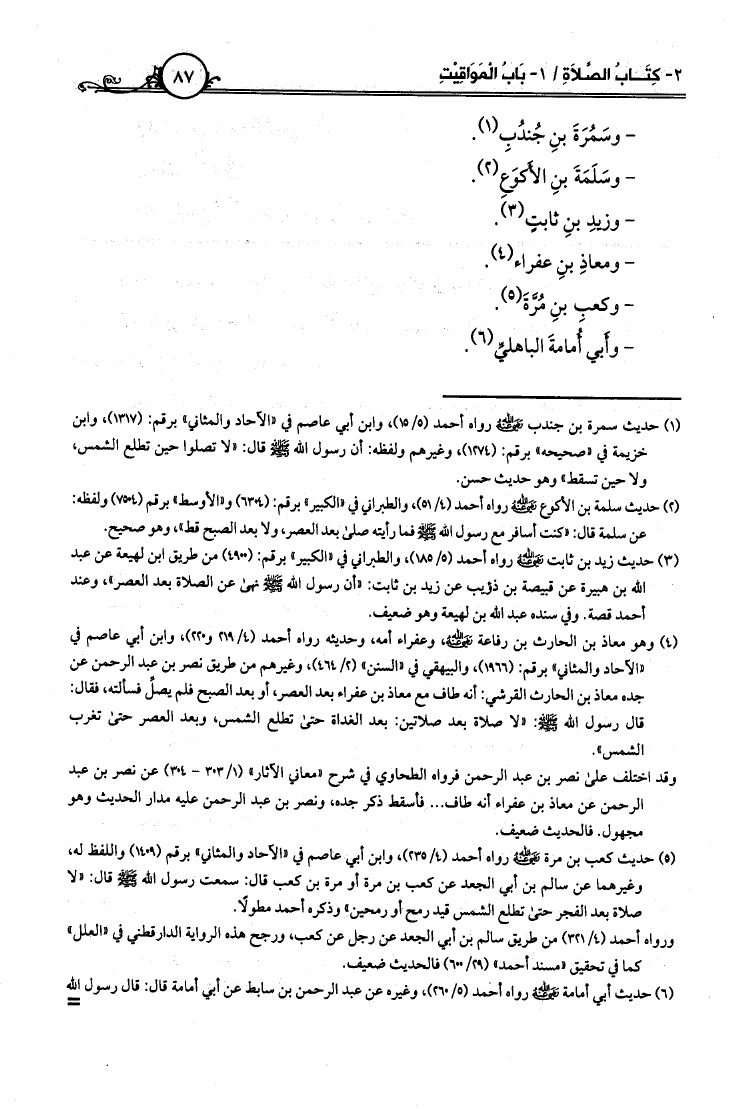 ٢- كِتَـــابُ الصَّلَاةِ / ١- بَابُ الْمَوَاقِيْتِ
٨٧
– وسَمُرَةَ بنِ جُندُبِ(١).
– وسَلَمَةَ بنِ الأَكوَعِ(٢).
– وزيدِ بنِ ثابتٍ(٣).
– ومعاذِ بنِ عفراء(٤).
– وكعبِ بنِ مُرَّةَ(٥).
– وأَبي أُمامةَ الباهليِّ(٦).
(١) حديث سمرة بن جندب رضي الله عنه رواه أحمد (٥/ ١٥)، وابن أبي عاصم في «الآحاد والمثاني» برقم: (١٣١٧)، وابن
خزيمة في «صحيحه» برقم: (١٢٧٤)، وغيرهم ولفظه: أن رسول الله ﷺ قال: «لا تصلوا حين تطلع الشمس،
ولا حين تسقط» وهو حديث حسن.
(٢) حديث سلمة بن الأكوع رضي الله عنه رواه أحمد (٤/ ٥١)، والطبراني في «الكبير» برقم: (٦٣٠٤) و«الأوسط» برقم (٧٥٠٤) ولفظه:
عن سلمة قال: «كنت أسافر مع رسول الله ﷺ فما رأيته صلىٰ بعد العصر، ولا بعد الصبح قط»، وهو صحيح.
(٣) حديث زيد بن ثابت رضي الله عنه رواه أحمد (٥/ ١٨٥)، والطبراني في «الكبير» برقم: (٤٩٠٠) من طريق ابن لهيعة عن عبد
الله بن هبيرة عن قبيصة بن ذؤيب عن زيد بن ثابت: «أن رسول الله ﷺ نهىٰ عن الصلاة بعد العصر»، وعند
أحمد قصة. وفي سنده عبد الله بن لهيعة وهو ضعيف.
(٤) وهو معاذ بن الحارث بن رفاعة رضي الله عنه، وعفراء أمه، وحديثه رواه أحمد (٤/ ٢١٩ و٢٢٠)، وابن أبي عاصم في
«الآحاد والمثاني» برقم: (١٩٦٦)، والبيهقي في «السنن» (٢/ ٤٦٤)، وغيرهم من طريق نصر بن عبد الرحمن عن
جده معاذ بن الحارث القرشي: أنه طاف مع معاذ بن عفراء بعد العصر، أو بعد الصبح فلم يصلِّ فسألته، فقال:
قال رسول الله ﷺ: «لا صلاة بعد صلاتين: بعد الغداة حتىٰ تطلع الشمس، وبعد العصر حتىٰ تغرب
الشمس».
وقد اختلف علىٰ نصر بن عبد الرحمن فرواه الطحاوي في شرح «معاني الآثار» (١/ ٣٠٣ – ٣٠٤) عن نصر بن عبد
الرحمن عن معاذ بن عفراء أنه طاف... فأسقط ذكر جده، ونصر بن عبد الرحمن عليه مدار الحديث وهو
مجهول. فالحديث ضعيف.
(٥) حديث كعب بن مرة رضي الله عنه رواه أحمد (٤/ ٢٣٥)، وابن أبي عاصم في «الآحاد والمثاني» برقم (١٤٠٩) واللفظ له،
وغيرهما عن سالم بن أبي الجعد عن كعب بن مرة أو مرة بن كعب قال: سمعت رسول الله ﷺ قال: «لا
صلاة بعد الفجر حتىٰ تطلع الشمس قيد رمح أو رمحين» وذكره أحمد مطولًا.
ورواه أحمد (٤/ ٣٢١) من طريق سالم بن أبي الجعد عن رجل عن كعب، ورجح هذه الرواية الدارقطني في «العلل»
كما في تحقيق «مسند أحمد» (٢٩/ ٦٠٠) فالحديث ضعيف.
(٦) حديث أبي أمامة رضي الله عنه رواه أحمد (٥/ ٢٦٠)، وغيره عن عبد الرحمن بن سابط عن أبي أمامة قال: قال رسول الله
=